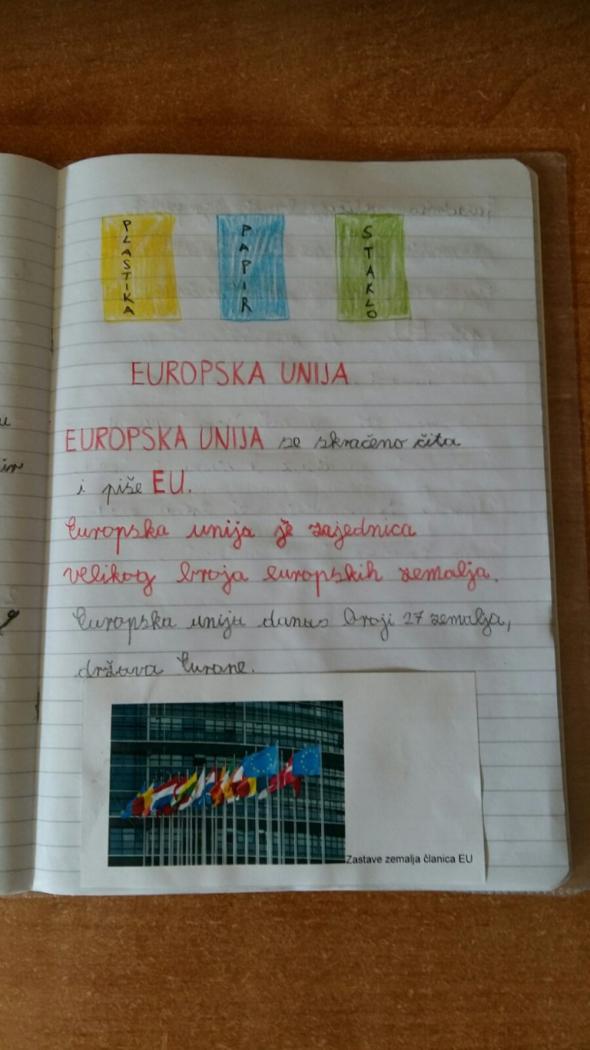 PLASTIKA
PAPIR
STAKLO
EUROPSKA UNIJA
EUROPSKA UNIJA se skraćeno čita
i piše EU.
Europska unija je zajednica
velikog broja europskih zemalja.
Europska uniju danas broji 27 zemalja,
država Europe.
Zastave zemalja članica EU